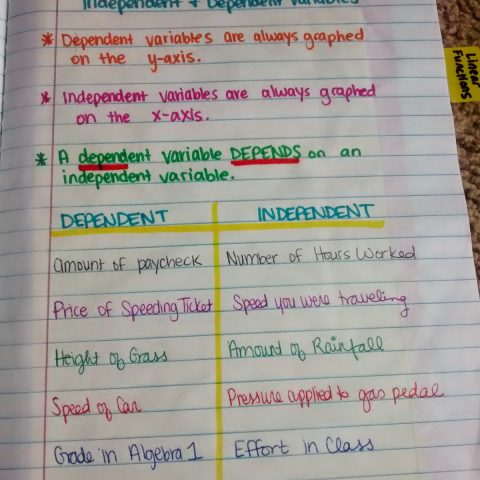 Independent & Dependent Variables
* Dependent variables are always graphed
on the y-axis.
Linear
Functions
* Independent variables are always graphed
on the x-axis.
* A dependent variable DEPENDS on an
independent variable.
DEPENDENT INDEPENDENT
amount of paycheck Number of Hours Worked
Price of Speeding Ticket Speed you were traveling
Height of Grass Amount of Rainfall
Speed of Car Pressure applied to gas pedal
Grade in Algebra 1 Effort in Class